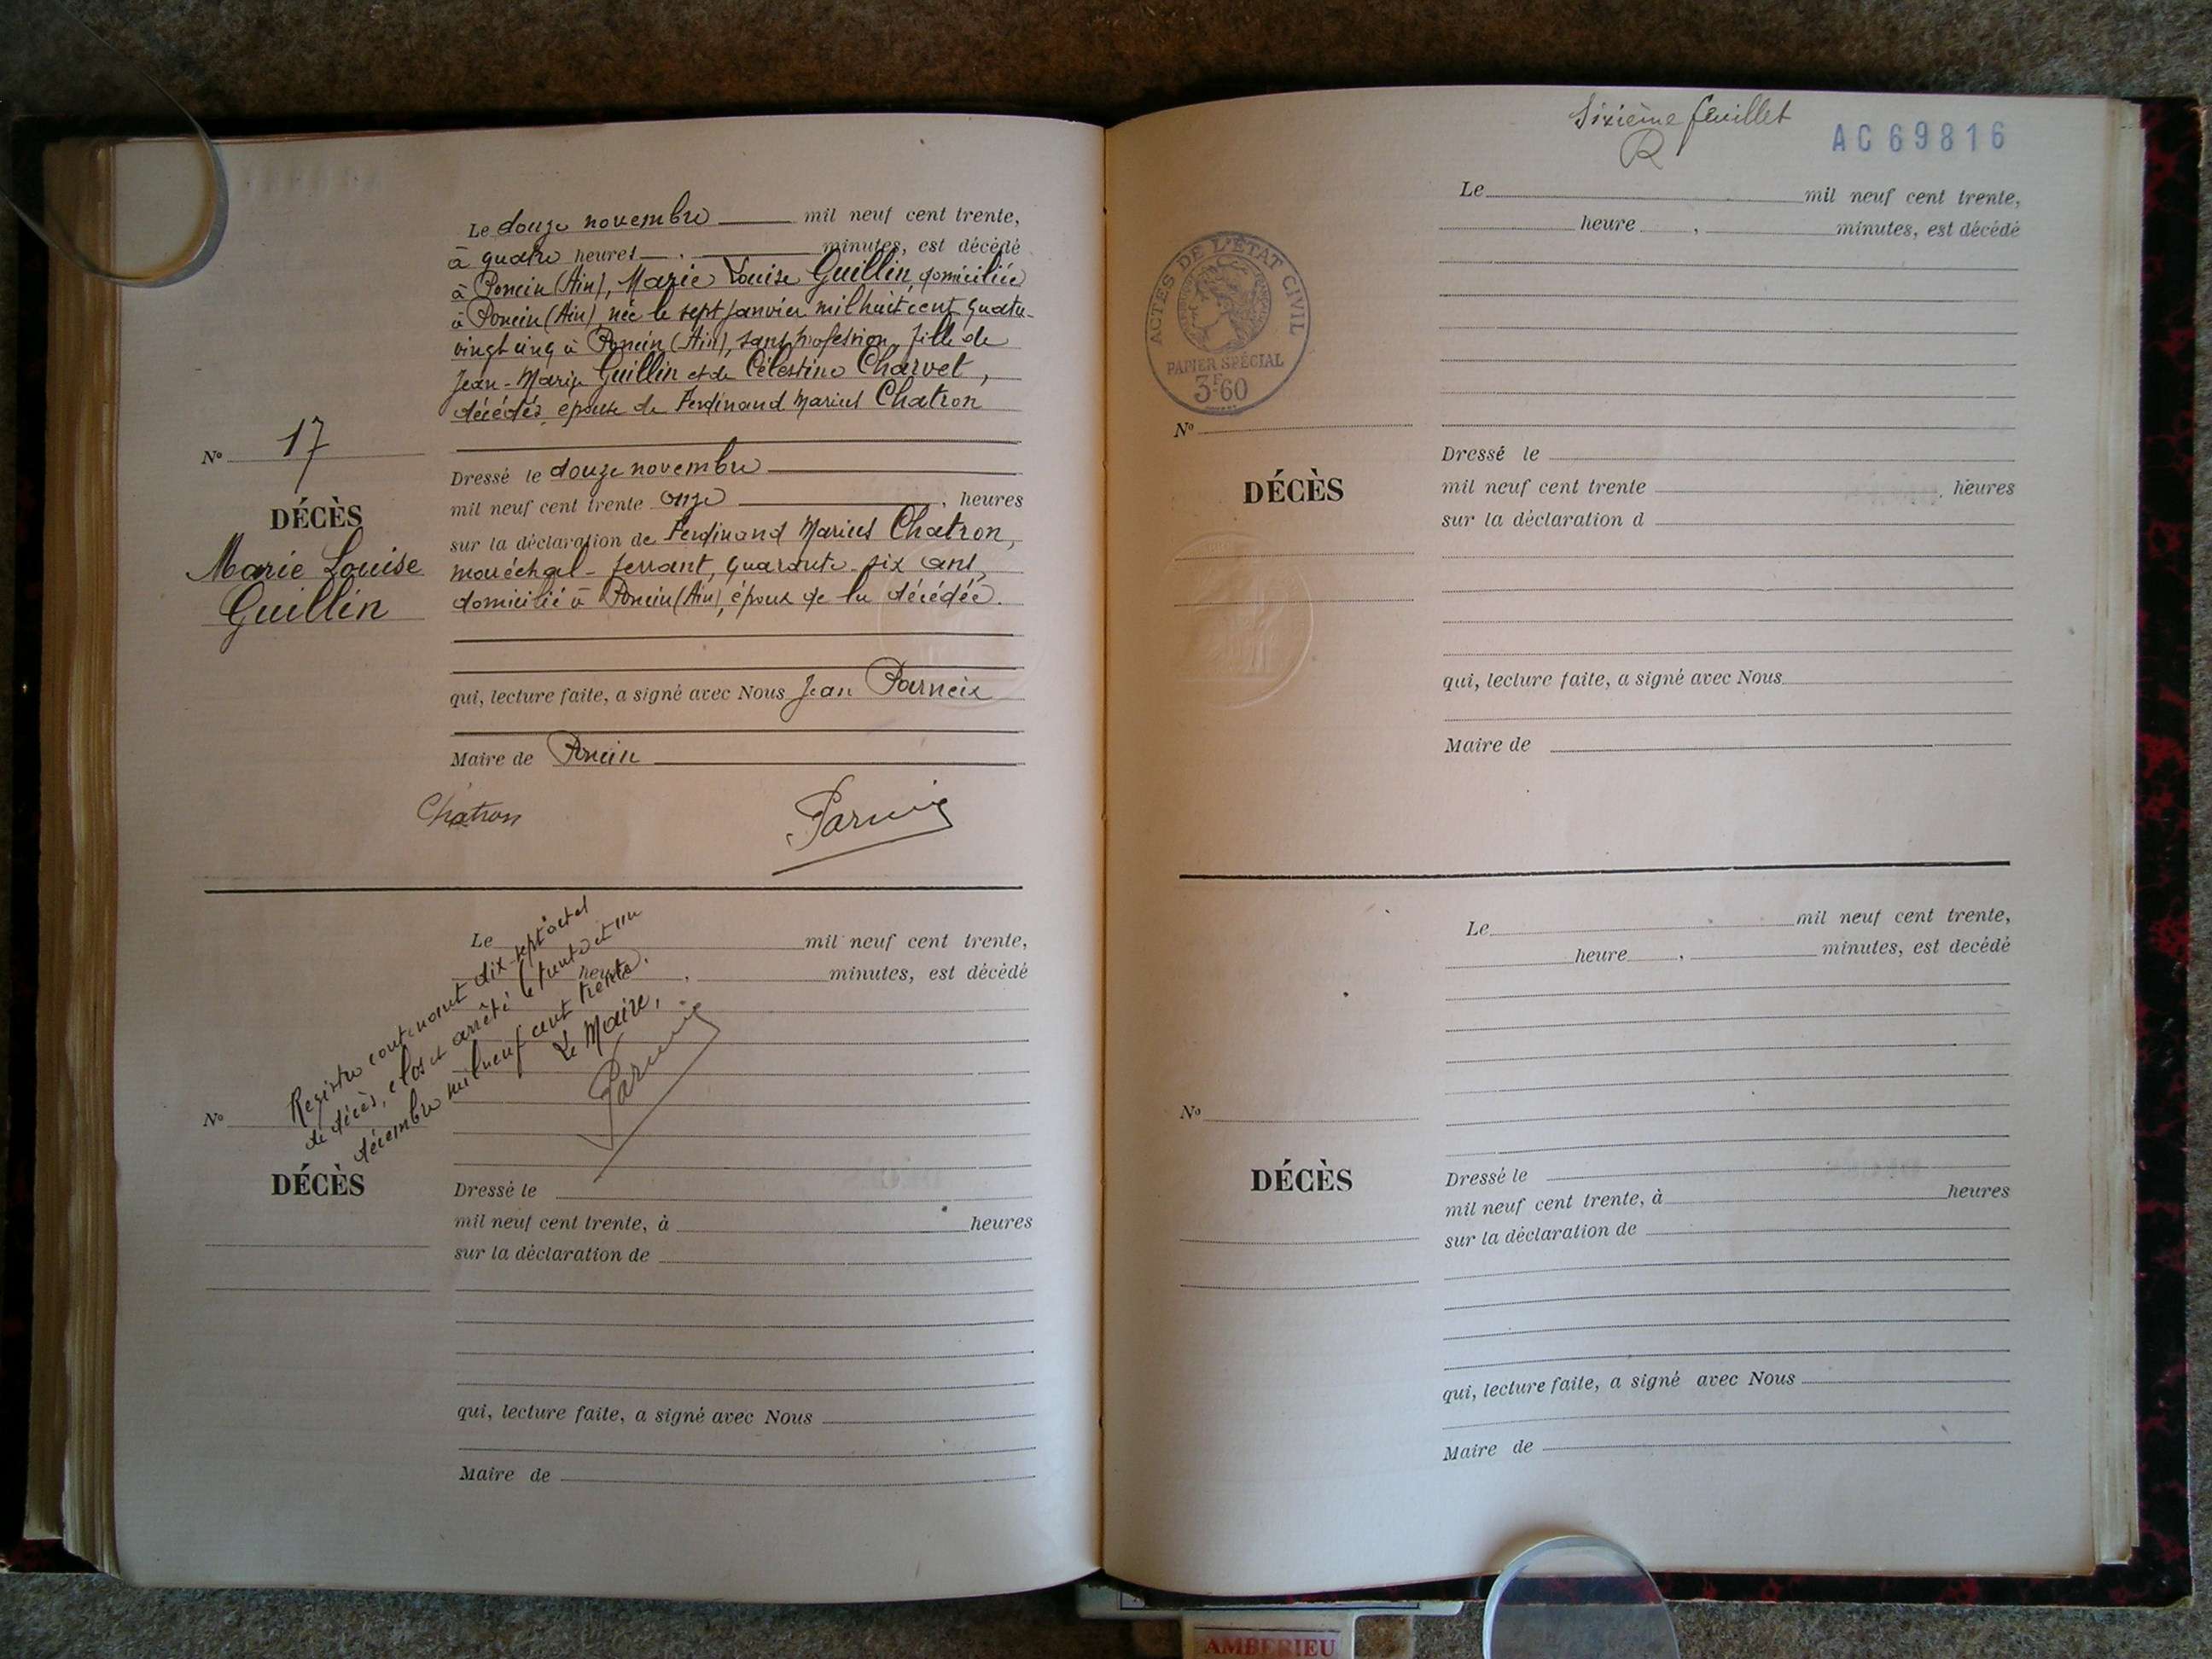 Le douze novembre mil neuf cent trente,
à quatre heures minutes, est décédé
à Poncin (Ain), Marie Louise Guillin, domiciliée
à Poncin (Ain), née le sept janvier mil huit cent quatre-
vingt cinq à Poncin (Ain), sans profession, fille de
Jean-Marie Guillin et de Célestine Charvet,
décédés, épouse de Ferdinand Marius Chatron
N° 17
DÉCÈS
Marie Louise
Guillin
Dressé le douze novembre
mil neuf cent trente onze , heures
sur la déclaration de Ferdinand Marius Chatron,
maréchal-ferrant, quarante-six ans,
domicilié à Poncin (Ain), époux de la décédée.
qui, lecture faite, a signé avec Nous Jean Parneix
Maire de Poncin
Chatron
Parneix
Le mil neuf cent trente,
heure , minutes, est décédé
Registre contenant dix-sept actes
de décès, clos et arrêté le trente et un
décembre mil neuf cent trente.
Le Maire,
Parneix
N°
DÉCÈS
Dressé le
mil neuf cent trente, à heures
sur la déclaration de
qui, lecture faite, a signé avec Nous
Maire de
Sixième feuillet
AC69816
ACTES DE L'ÉTAT CIVIL
PAPIER SPÉCIAL
3F60
Le mil neuf cent trente,
heure , minutes, est décédé
N°
DÉCÈS
Dressé le
mil neuf cent trente , heures
sur la déclaration d
qui, lecture faite, a signé avec Nous
Maire de
Le mil neuf cent trente,
heure , minutes, est decédé
N°
DÉCÈS
Dressé le
mil neuf cent trente, à heures
sur la déclaration de
qui, lecture faite, a signé avec Nous
Maire de
AMBERIEU